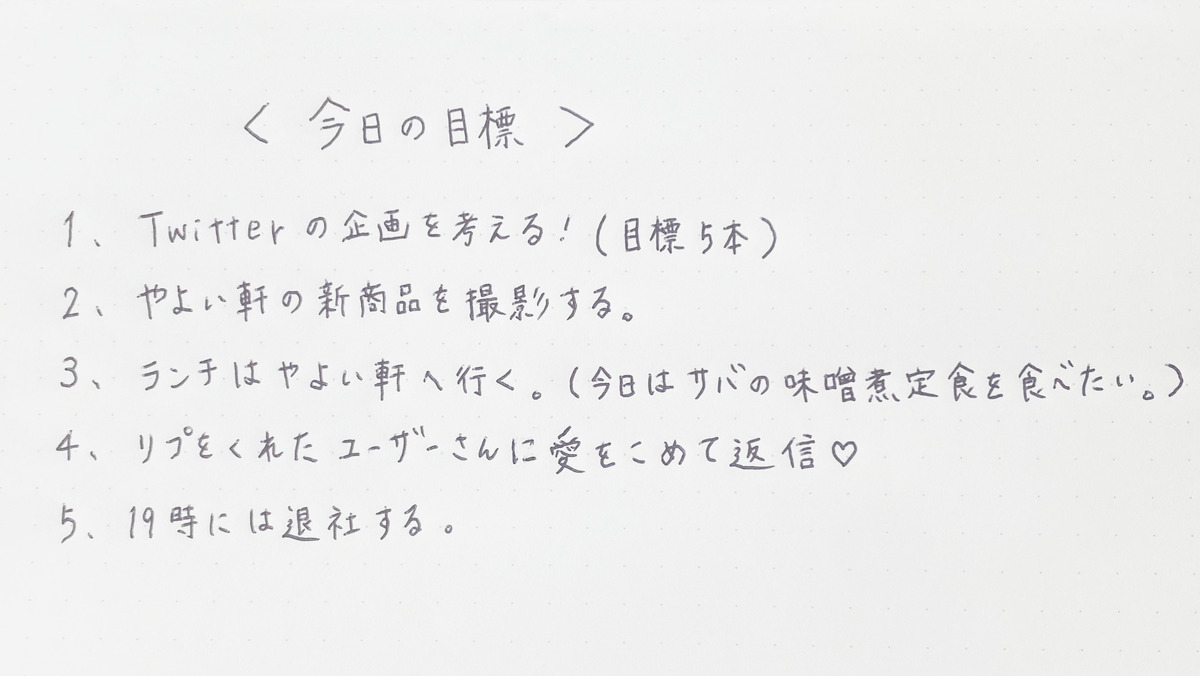 < 今日の目標 >
1、Twitterの企画を考える!(目標5本)
2、やよい軒の新商品を撮影する。
3、ランチはやよい軒へ行く。(今日はサバの味噌煮定食を食べたい。)
4、リプをくれたユーザーさんに愛をこめて返信♡
5、19時には退社する。